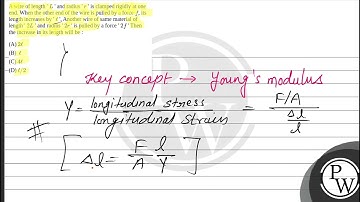 A wire of length ' L ' and radius ' r ' is clamped rigidly at one
end. When the other end of the wire is pulled by a force f, its
length increases by ' ℓ '. Another wire of same material of
length ' 2L ' and radius ' 2r ' is pulled by a force ' 2f '. Then
the increase in its length will be :
(A) 2ℓ
(B) ℓ
(C) 4ℓ
(D) ℓ / 2
Y
Key concept → Young's modulus
Y = longitudinal stress / longitudinal strain = F/A / Δl/l
# [ Δl = F/A l/Y ]
PW